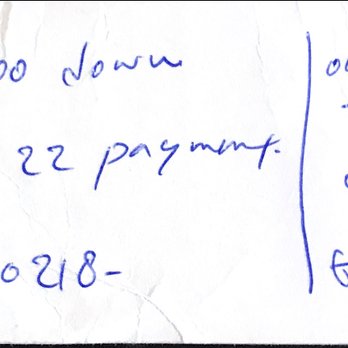 00 down
22 payment.
0218-